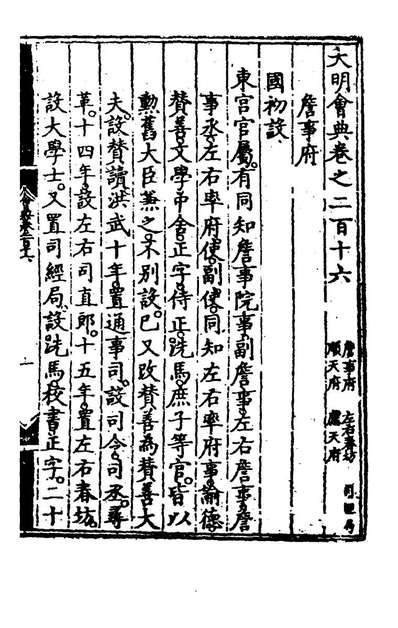 大明會典卷之二百十六
詹事府 左右春坊 司經局
順天府 應天府
詹事府
國初設
東宮官屬。有同知詹事院事。副詹事。左右詹事。詹
事丞。左右率府使。副使。同知左右率府事。諭德
贊善。文學。中舍。正字。侍正。洗馬。庶子等官。皆以
勳舊大臣兼之。不別設。已又改贊善為贊善大
夫。設贊讀。洪武十年。置通事司。設司令。司丞。尋
革。十四年。設左右司直郎。十五年。置左右春坊。
設大學士。又置司經局。設洗馬。校書。正字。二十